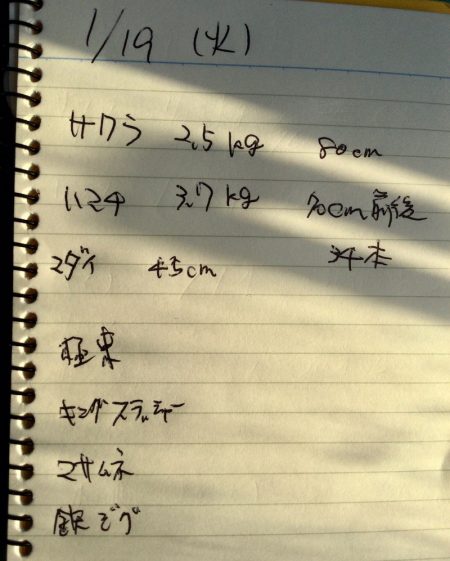 1/19 (火)
サワラ 2.5kg 80cm
ハマチ 3.7kg 70cm前後
本
マダイ 45cm
極東
キングスラッシャー
マサムネ
銀ジグ